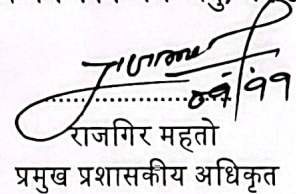 ०९।११
राजगिर महतो
प्रमुख प्रशासकीय अधिकृत